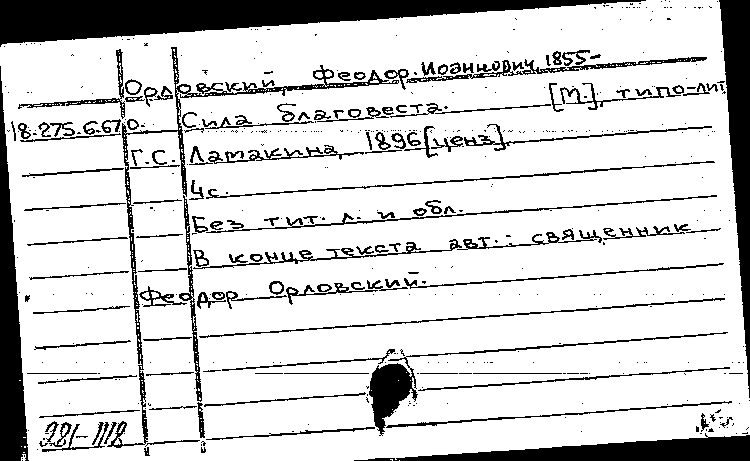 Орловский, Феодор Иоаннович, 1855-
18.275.6.670. Сила благовеста. [М.], типо-лит.
Г.С. Ламакина, 1896 [ценз].
4с.
Без тит. л. и обл.
В конце текста авт.: священник
Феодор Орловский.
281-1118